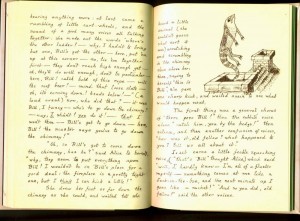 hearing anything more: at last came a
rumbling of little cart-wheels, and the
sound of a good many voices all talking
together: she made out the words "where's
the other ladder? — why, I hadn't to bring
but one, Bill's got the other — here, put 'em
up at this corner — no, tie 'em together
first — they don't reach high enough yet —
oh, they'll do well enough, don't be particular —
here, Bill! catch hold of this rope — will
the roof bear? — mind that loose slate —
oh, it's coming down! heads below! —" (a
loud crash) "now, who did that? — it was
Bill, I fancy — who's to go down the chimney?
— nay, I shan't! you do it! — that I
won't then — Bill's got to go down — here,
Bill! the master says you're to go down
the chimney!"
"Oh, so Bill's got to come down
the chimney, has he?" said Alice to herself,
"why, they seem to put everything upon
Bill! I wouldn't be in Bill's place for a
good deal: the fireplace is a pretty tight
one, but I think I can kick a little!"
She drew her foot as far down
the chimney as she could, and waited till she
heard a little
animal (she
couldn't guess
what sort it was)
scratching
and scrambling
in the chimney
close above
her: then, saying
to herself "this
is Bill," she gave
one sharp kick, and waited again to see what
would happen next.
The first thing was a general chorus
of "there goes Bill!" then the rabbit's voice
alone "catch him, you by the hedge!" then
silence, and then another confusion of voices,
"how was it, old fellow? what happened to
you? tell us all about it."
Last came a little feeble squeaking
voice, ("that's Bill" thought Alice,) which said
"well, I hardly know — I'm all of a fluster
myself — something comes at me like a
Jack-in-the-box, and the next minute up I
goes like a rocket!" "And so you did, old
fellow!" said the other voices.